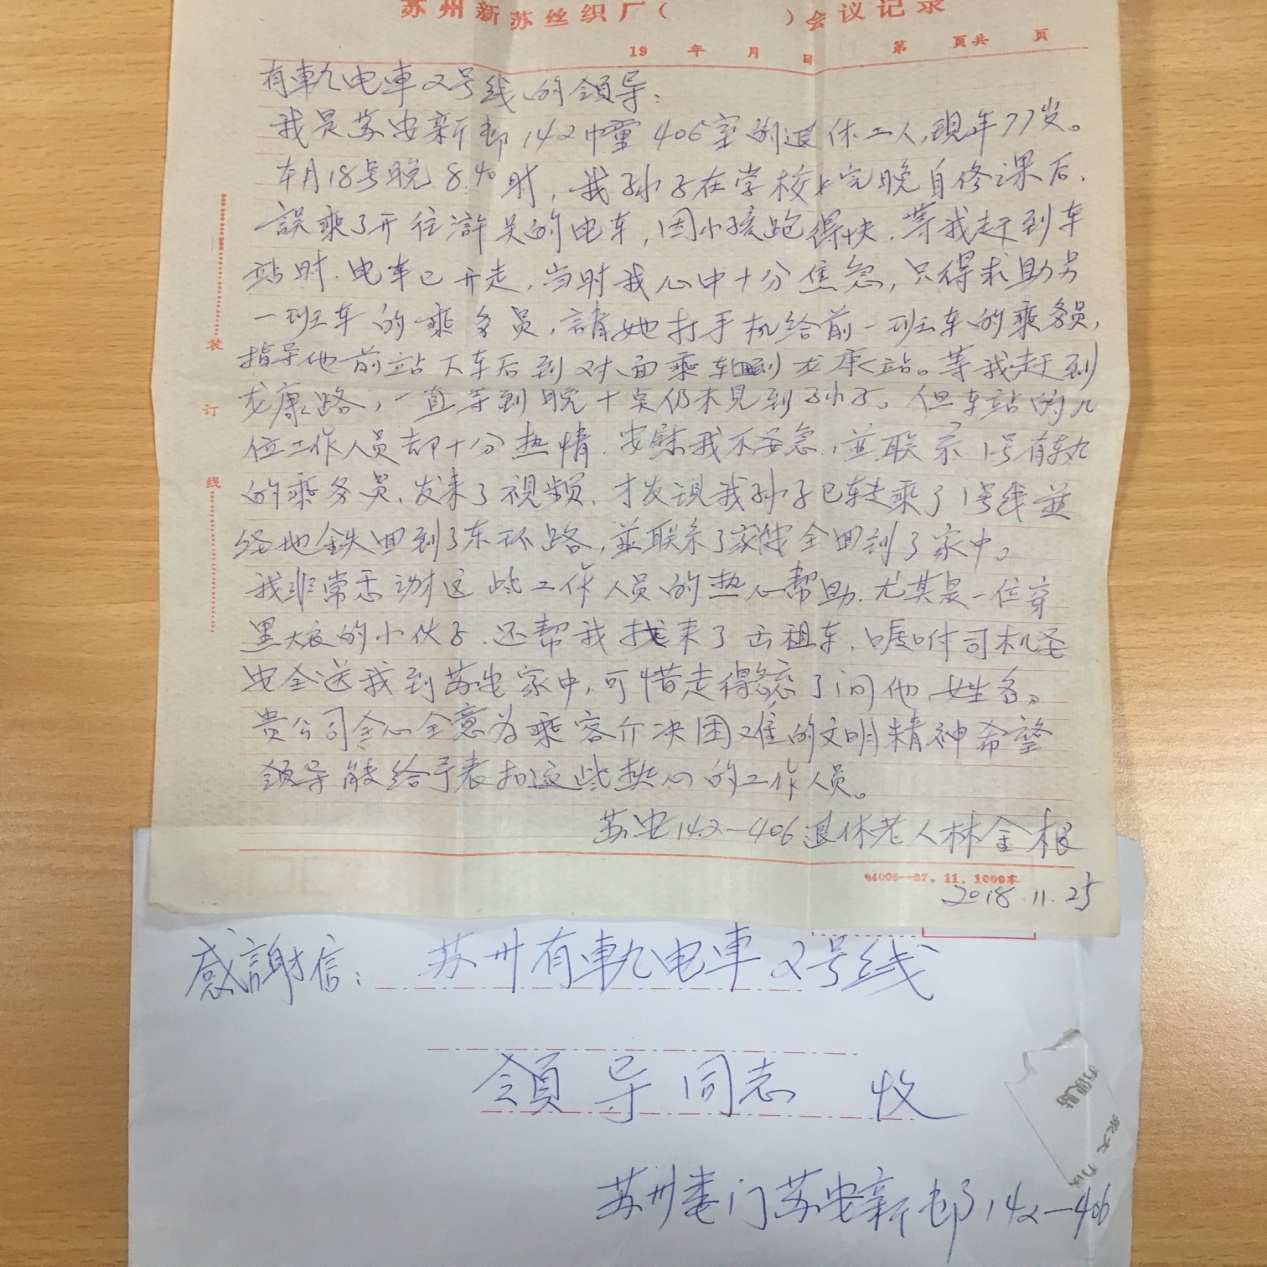 苏州新苏丝织厂(          )会议记录
19  年  月  日  第  頁共  頁
有軌电車2号线的领导:
我是苏安新邨142幢406室的退休工人,現年77岁。
本月18号晚8.40时,我孙子在学校上完晚自修课后,
誤乘了开往浒关的电车,因小孩跑得快,等我赶到车
站时,电车已开走,当时我心中十分焦急,只得求助另
一班车的乘务员,請她打手机给前一班车的乘务员,
指导他前站下车后到对面乘车回到龙康站。等我赶到
龙康路,一直等到晚十点仍未见到孙子。但车站的几
位工作人员却十分热情,安慰我不要急,並联系1号有軌
的乘务员,发来了视频,才发现我孙子已转乘了1号线並
经地铁回到了东环路,並联系了家俊全回到了家中。
我非常感动这些工作人员的热心帮助,尤其是一位穿
黑大衣的小伙子,还帮我找来了出租车,嘱咐司机要
安全送我到苏安家中,可惜走得急忘了问他姓名。
贵公司全心全意为乘客介决困难的文明精神希望
领导能给予表扬这些热心的工作人员。
苏安142—406退休老人林金根
84008--87.11.1000本
2018.11.25
装
订
线
感謝信:苏州有軌电車2号线
領导同志 收
苏州娄门苏安新邨142—406